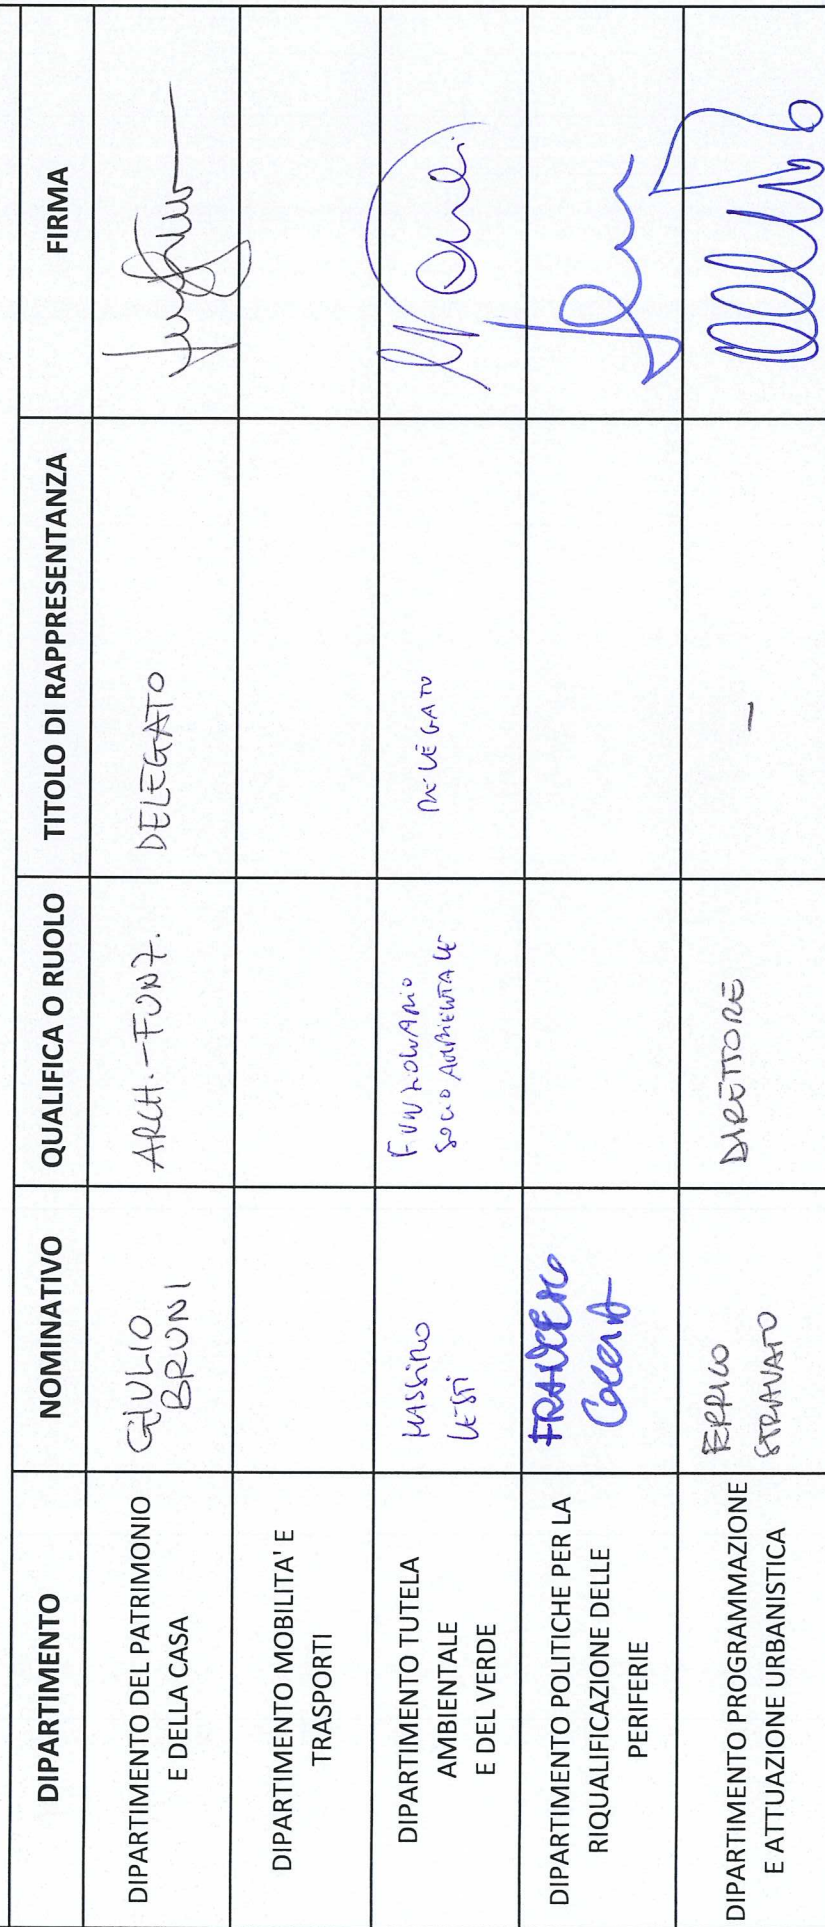 DIPARTIMENTO
NOMINATIVO
QUALIFICA O RUOLO
TITOLO DI RAPPRESENTANZA
FIRMA
DIPARTIMENTO DEL PATRIMONIO
E DELLA CASA
GIULIO
BRUNI
ARCH.-FUNZ.
DELEGATO
DIPARTIMENTO MOBILITA' E
TRASPORTI
DIPARTIMENTO TUTELA
AMBIENTALE
E DEL VERDE
MASSIMO
LESTI
FUNZIONARIO
SOCIO AMBIENTALE
DELEGATO
DIPARTIMENTO POLITICHE PER LA
RIQUALIFICAZIONE DELLE
PERIFERIE
FRANCESCO
DIPARTIMENTO PROGRAMMAZIONE
E ATTUAZIONE URBANISTICA
ERRICO
STRAVATO
DIRETTORE
-